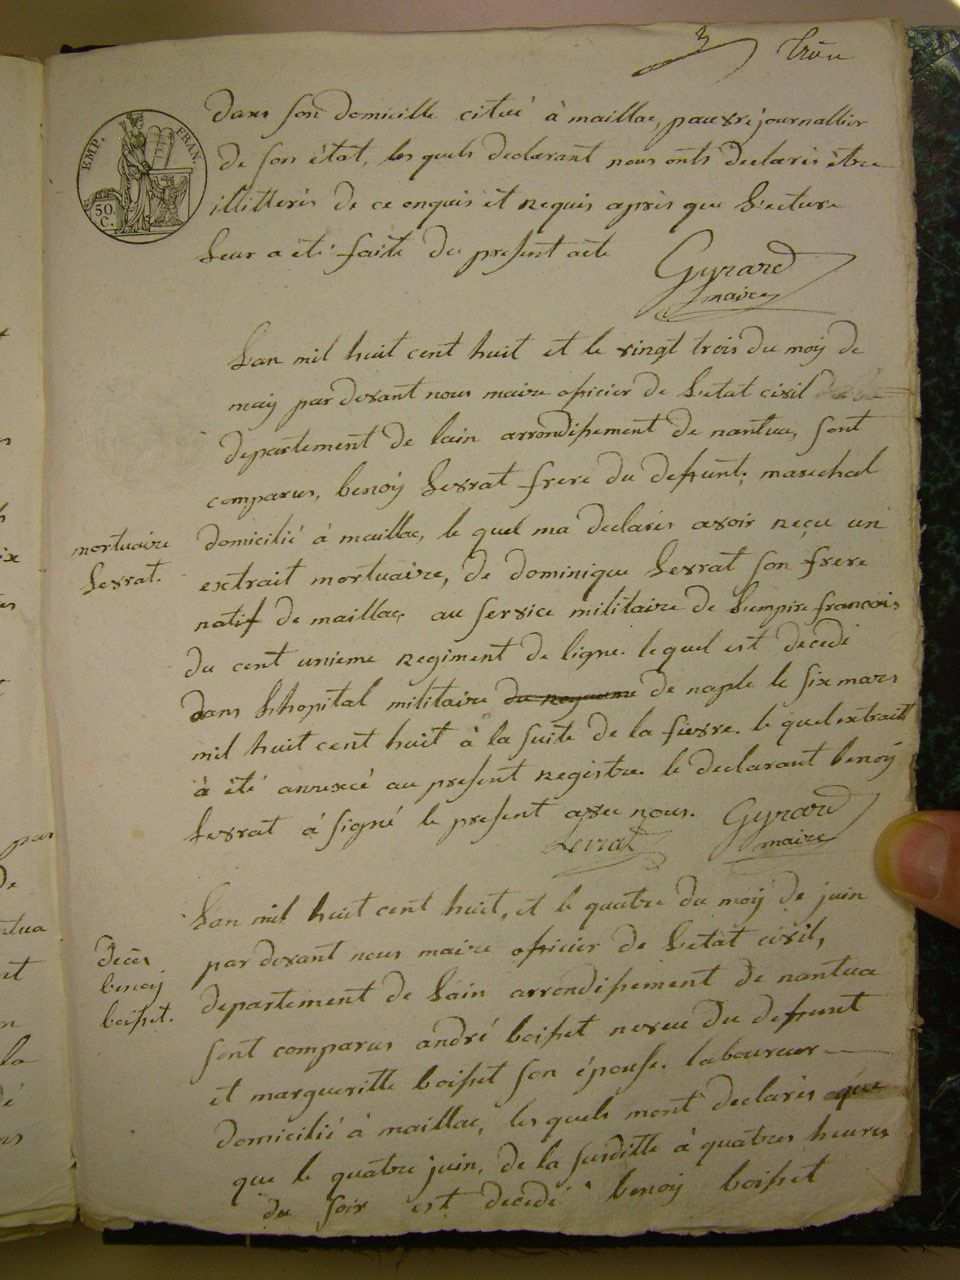 3 trois
EMP. FRAN.
50. C.
dans son domicille citué à maillac, pauvre journallier
de son état, les quels declarant nous onts declarés être
illitterés de ce enquis et requis apris que Lecture
Leur a été faite du present acte
Gyrard
maire
L'an mil huit cent huit et le vingt trois du moy de
may par devant nous maire oficier de L'etat civil
departement de lain arrondissement de nantua, sont
comparus, benoy Levrat frere du defunt, marechal
domicilié à maillac, le quel ma declarés avoir reçu un
extrait mortuaire, de dominique Levrat son frere
natif de maillac au service militaire de L'empire francois
du cent unieme regiment de ligne. lequel est decedé
dans L'hopital militaire du royaume de naple le six mars
mil huit cent huit à la suite de la fievre. le quel extrait
à été annexcé au present registre. le declarant benoy
Levrat à signé le present avec nous.
Levrat
Gyrard
maire
mortuaire
Levrat.
L'an mil huit cent huit, et le quatre du moy de juin
par devant nous maire oficier de L'etat civil,
departement de Lain arrondissement de nantua
sont comparus andré boisset neveu du defunt
et margueritte boisset son épouse. laboureur
domicilié à maillac, les quels mont declarés que
que le quatre juin, de la susditte à quatres heures
du soir est decedé benoy boisset
decès
benoy
boisset.